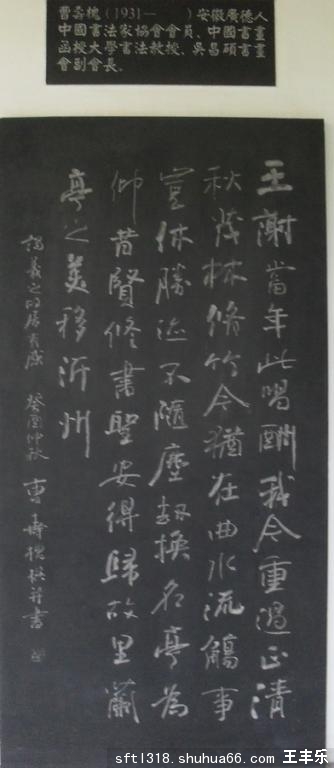 曹壽槐(1931—　　)安徽廣德人
中國書法家協會會員、中國書畫
函授大學書法教授、吳昌碩書畫
會副會長。
王謝當年此唱酬我今重過正清
秋茂林脩竹今猶在曲水流觴事
豈休勝迹不隨塵劫換名亭為
仰昔賢修書聖安得歸故里蘭
亭之美移沂州
謁羲之故居有感 癸酉仲秋 曹壽槐撰并書
sftl318.shuhua66.com 王丰乐